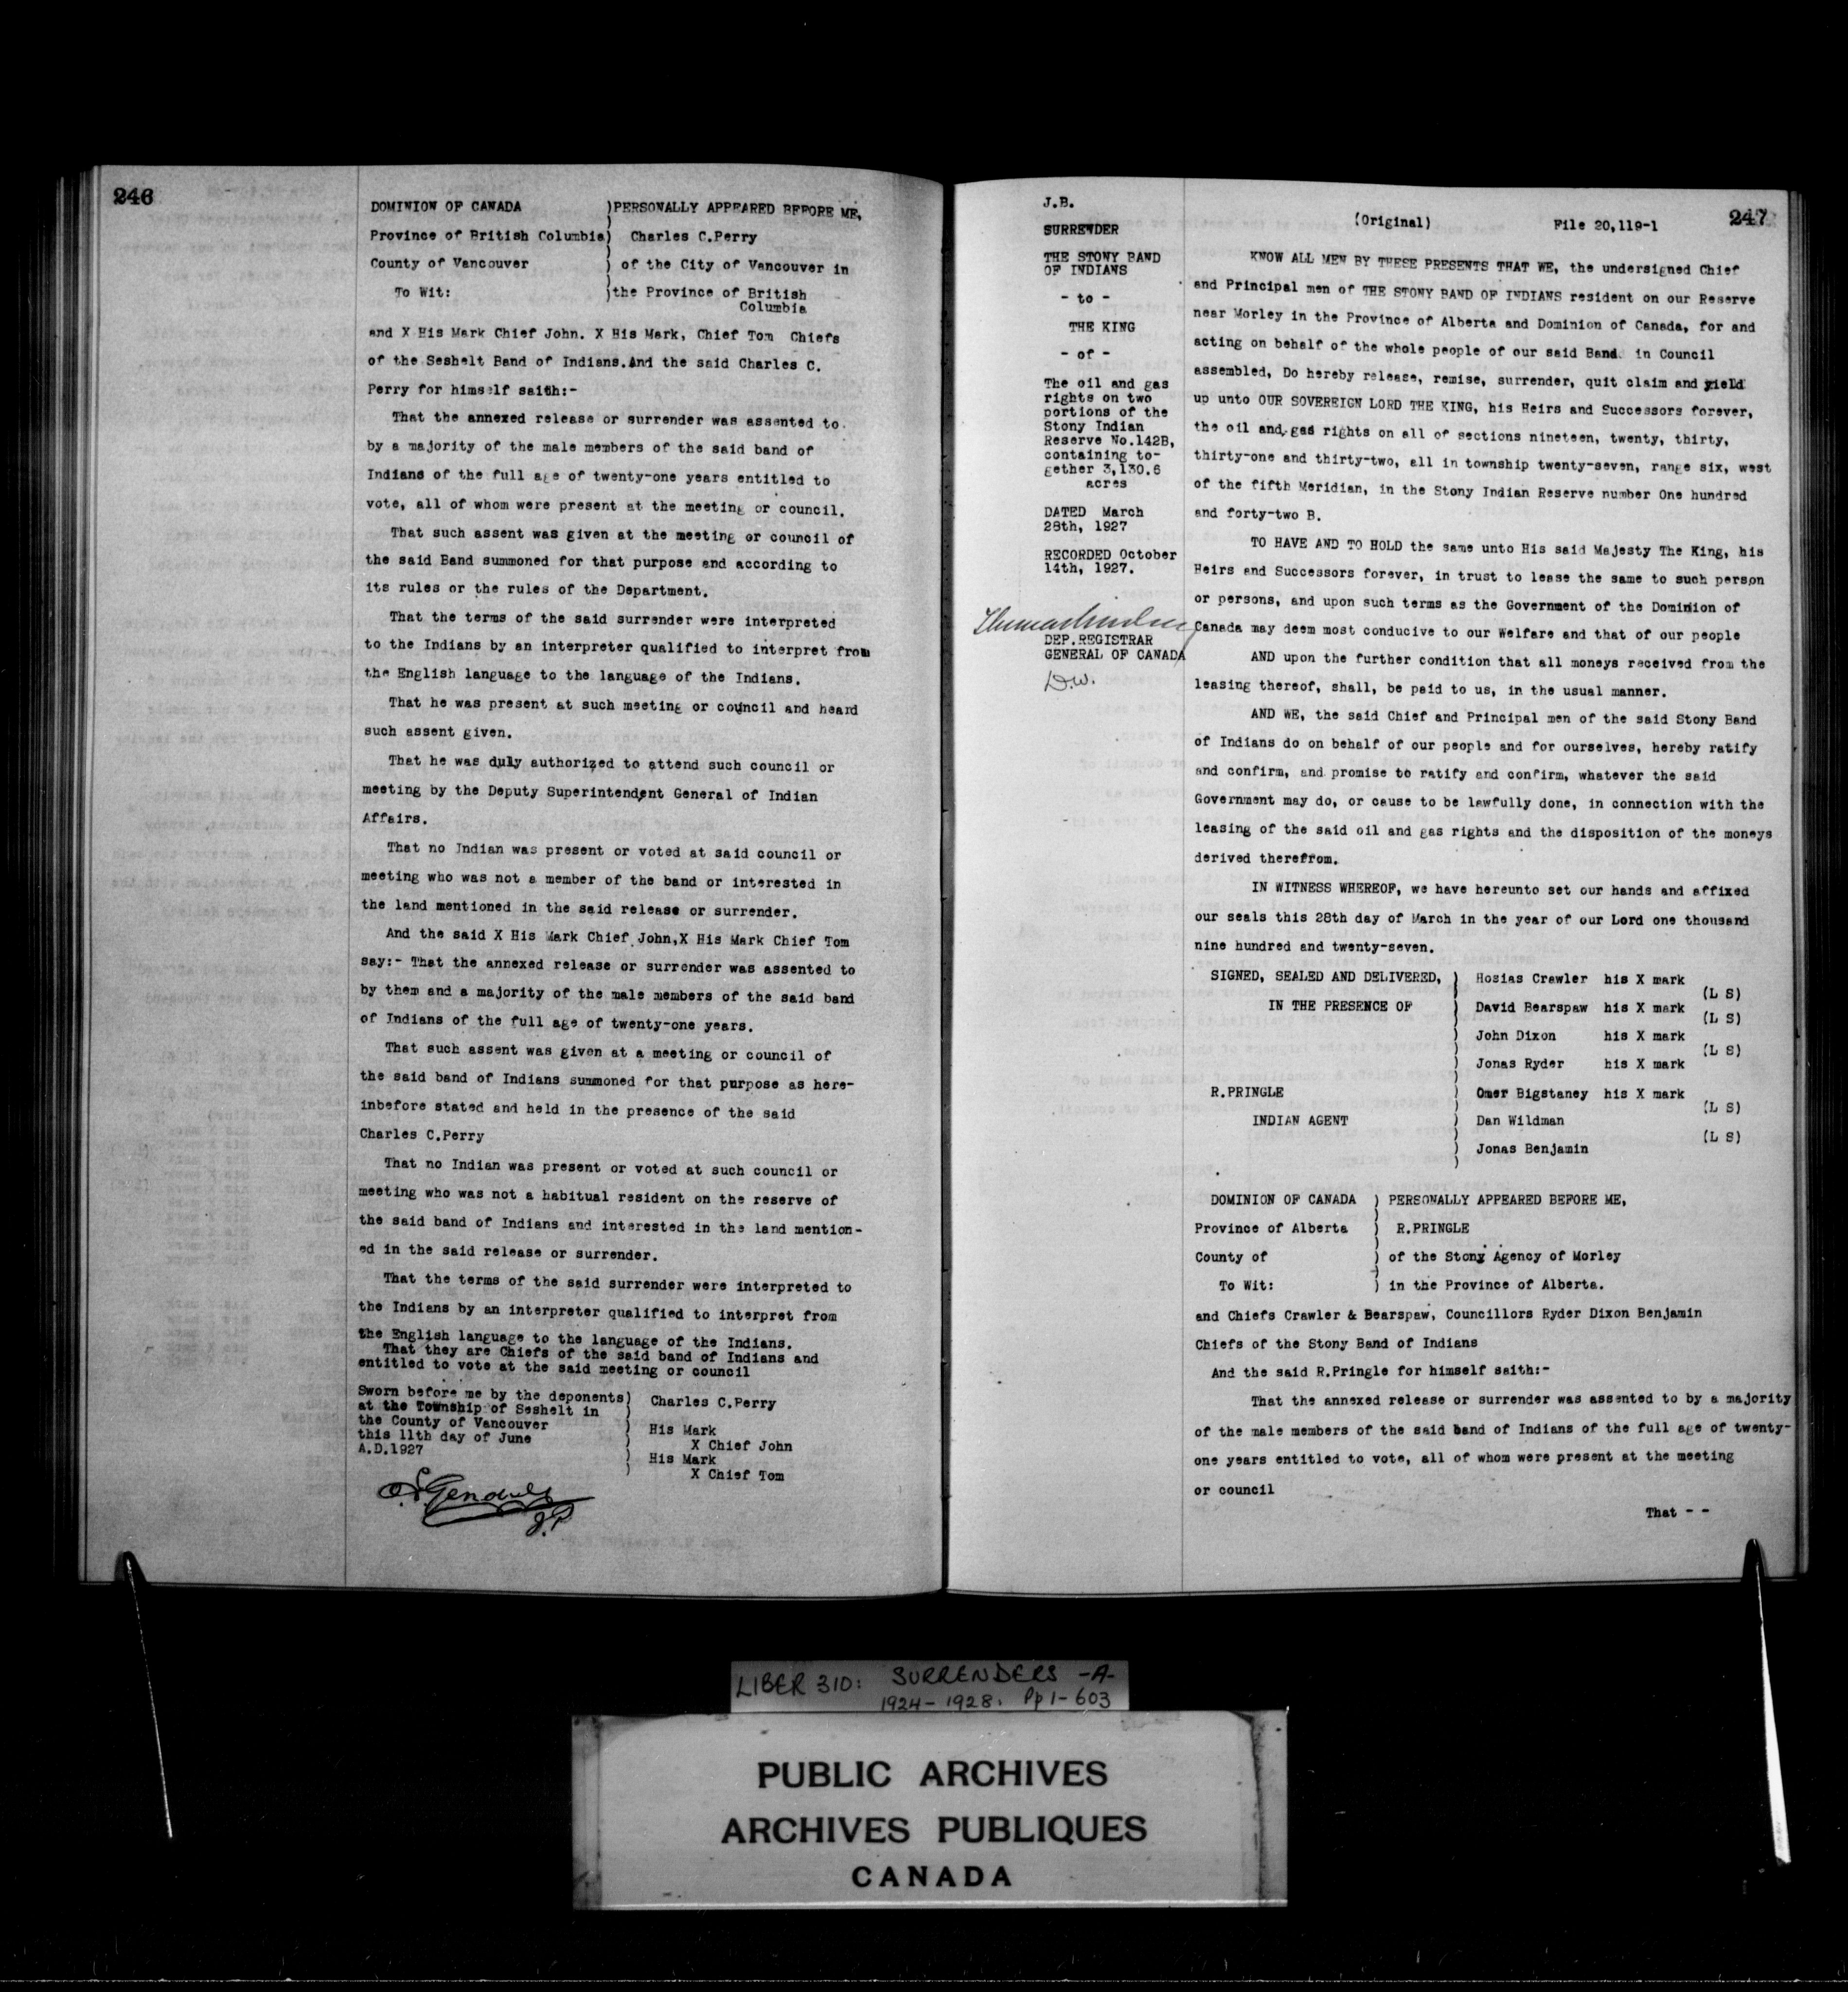 246
DOMINION OF CANADA )PERSONALLY APPEARED BEFORE ME,
)
Province of British Columbia) Charles C.Perry
)
County of Vancouver ) of the City of Vancouver in
)
To Wit: )the Province of British
Columbia
and X His Mark Chief John. X His Mark, Chief Tom Chiefs
of the Seshelt Band of Indians.And the said Charles C.
Perry for himself saith:-
That the annexed release or surrender was assented to
by a majority of the male members of the said band of
Indians of the full age of twenty-one years entitled to
vote, all of whom were present at the meeting or council.
That such assent was given at the meeting or council of
the said Band summoned for that purpose and according to
its rules or the rules of the Department.
That the terms of the said surrender were interpreted
to the Indians by an interpreter qualified to interpret from
the English language to the language of the Indians.
That he was present at such meeting or council and heard
such assent given.
That he was duly authorized to attend such council or
meeting by the Deputy Superintendent General of Indian
Affairs.
That no Indian was present or voted at said council or
meeting who was not a member of the band or interested in
the land mentioned in the said release or surrender.
And the said X His Mark Chief John,X His Mark Chief Tom
say:- That the annexed release or surrender was assented to
by them and a majority of the male members of the said band
of Indians of the full age of twenty-one years.
That such assent was given at a meeting or council of
the said band of Indians summoned for that purpose as here-
inbefore stated and held in the presence of the said
Charles C.Perry
That no Indian was present or voted at such council or
meeting who was not a habitual resident on the reserve of
the said band of Indians and interested in the land mention-
ed in the said release or surrender.
That the terms of the said surrender were interpreted to
the Indians by an interpreter qualified to interpret from
the English language to the language of the Indians.
That they are Chiefs of the said band of Indians and
entitled to vote at the said meeting or council
Sworn before me by the deponents) Charles C.Perry
at the Township of Seshelt in )
the County of Vancouver ) His Mark
this 11th day of June ) X Chief John
A.D.1927 ) His Mark
) X Chief Tom
J.P.
J.B.
SURRENDER
THE STONY BAND
OF INDIANS
- to -
THE KING
- of -
The oil and gas
rights on two
portions of the
Stony Indian
Reserve No.142B,
containing to-
gether 3,130.6
acres
DATED March
28th, 1927
RECORDED October
14th, 1927.
DEP.REGISTRAR
GENERAL OF CANADA
D.W.
(Original) File 20,119-1 247
KNOW ALL MEN BY THESE PRESENTS THAT WE, the undersigned Chief
and Principal men of THE STONY BAND OF INDIANS resident on our Reserve
near Morley in the Province of Alberta and Dominion of Canada, for and
acting on behalf of the whole people of our said Band in Council
assembled, Do hereby release, remise, surrender, quit claim and yield
up unto OUR SOVEREIGN LORD THE KING, his Heirs and Successors forever,
the oil and gas rights on all of sections nineteen, twenty, thirty,
thirty-one and thirty-two, all in township twenty-seven, range six, west
of the fifth Meridian, in the Stony Indian Reserve number One hundred
and forty-two B.
TO HAVE AND TO HOLD the same unto His said Majesty The King, his
Heirs and Successors forever, in trust to lease the same to such person
or persons, and upon such terms as the Government of the Dominion of
Canada may deem most conducive to our Welfare and that of our people
AND upon the further condition that all moneys received from the
leasing thereof, shall, be paid to us, in the usual manner.
AND WE, the said Chief and Principal men of the said Stony Band
of Indians do on behalf of our people and for ourselves, hereby ratify
and confirm, and promise to ratify and confirm, whatever the said
Government may do, or cause to be lawfully done, in connection with the
leasing of the said oil and gas rights and the disposition of the moneys
derived therefrom.
IN WITNESS WHEREOF, we have hereunto set our hands and affixed
our seals this 28th day of March in the year of our Lord one thousand
nine hundred and twenty-seven.
SIGNED, SEALED AND DELIVERED, ) Hosias Crawler his X mark
(L S)
IN THE PRESENCE OF ) David Bearspaw his X mark
(L S)
) John Dixon his X mark
(L S)
) Jonas Ryder his X mark
R.PRINGLE ) Omer Bigstaney his X mark
(L S)
INDIAN AGENT ) Dan Wildman
(L S)
) Jonas Benjamin
DOMINION OF CANADA ) PERSONALLY APPEARED BEFORE ME,
Province of Alberta ) R.PRINGLE
County of ) of the Stony Agency of Morley
To Wit: ) in the Province of Alberta.
and Chiefs Crawler & Bearspaw, Councillors Ryder Dixon Benjamin
Chiefs of the Stony Band of Indians
And the said R.Pringle for himself saith:-
That the annexed release or surrender was assented to by a majority
of the male members of the said band of Indians of the full age of twenty-
one years entitled to vote, all of whom were present at the meeting
or council
That - -
LIBER 310: SURRENDERS -A-
1924-1928. Pp 1-603
PUBLIC ARCHIVES
ARCHIVES PUBLIQUES
CANADA